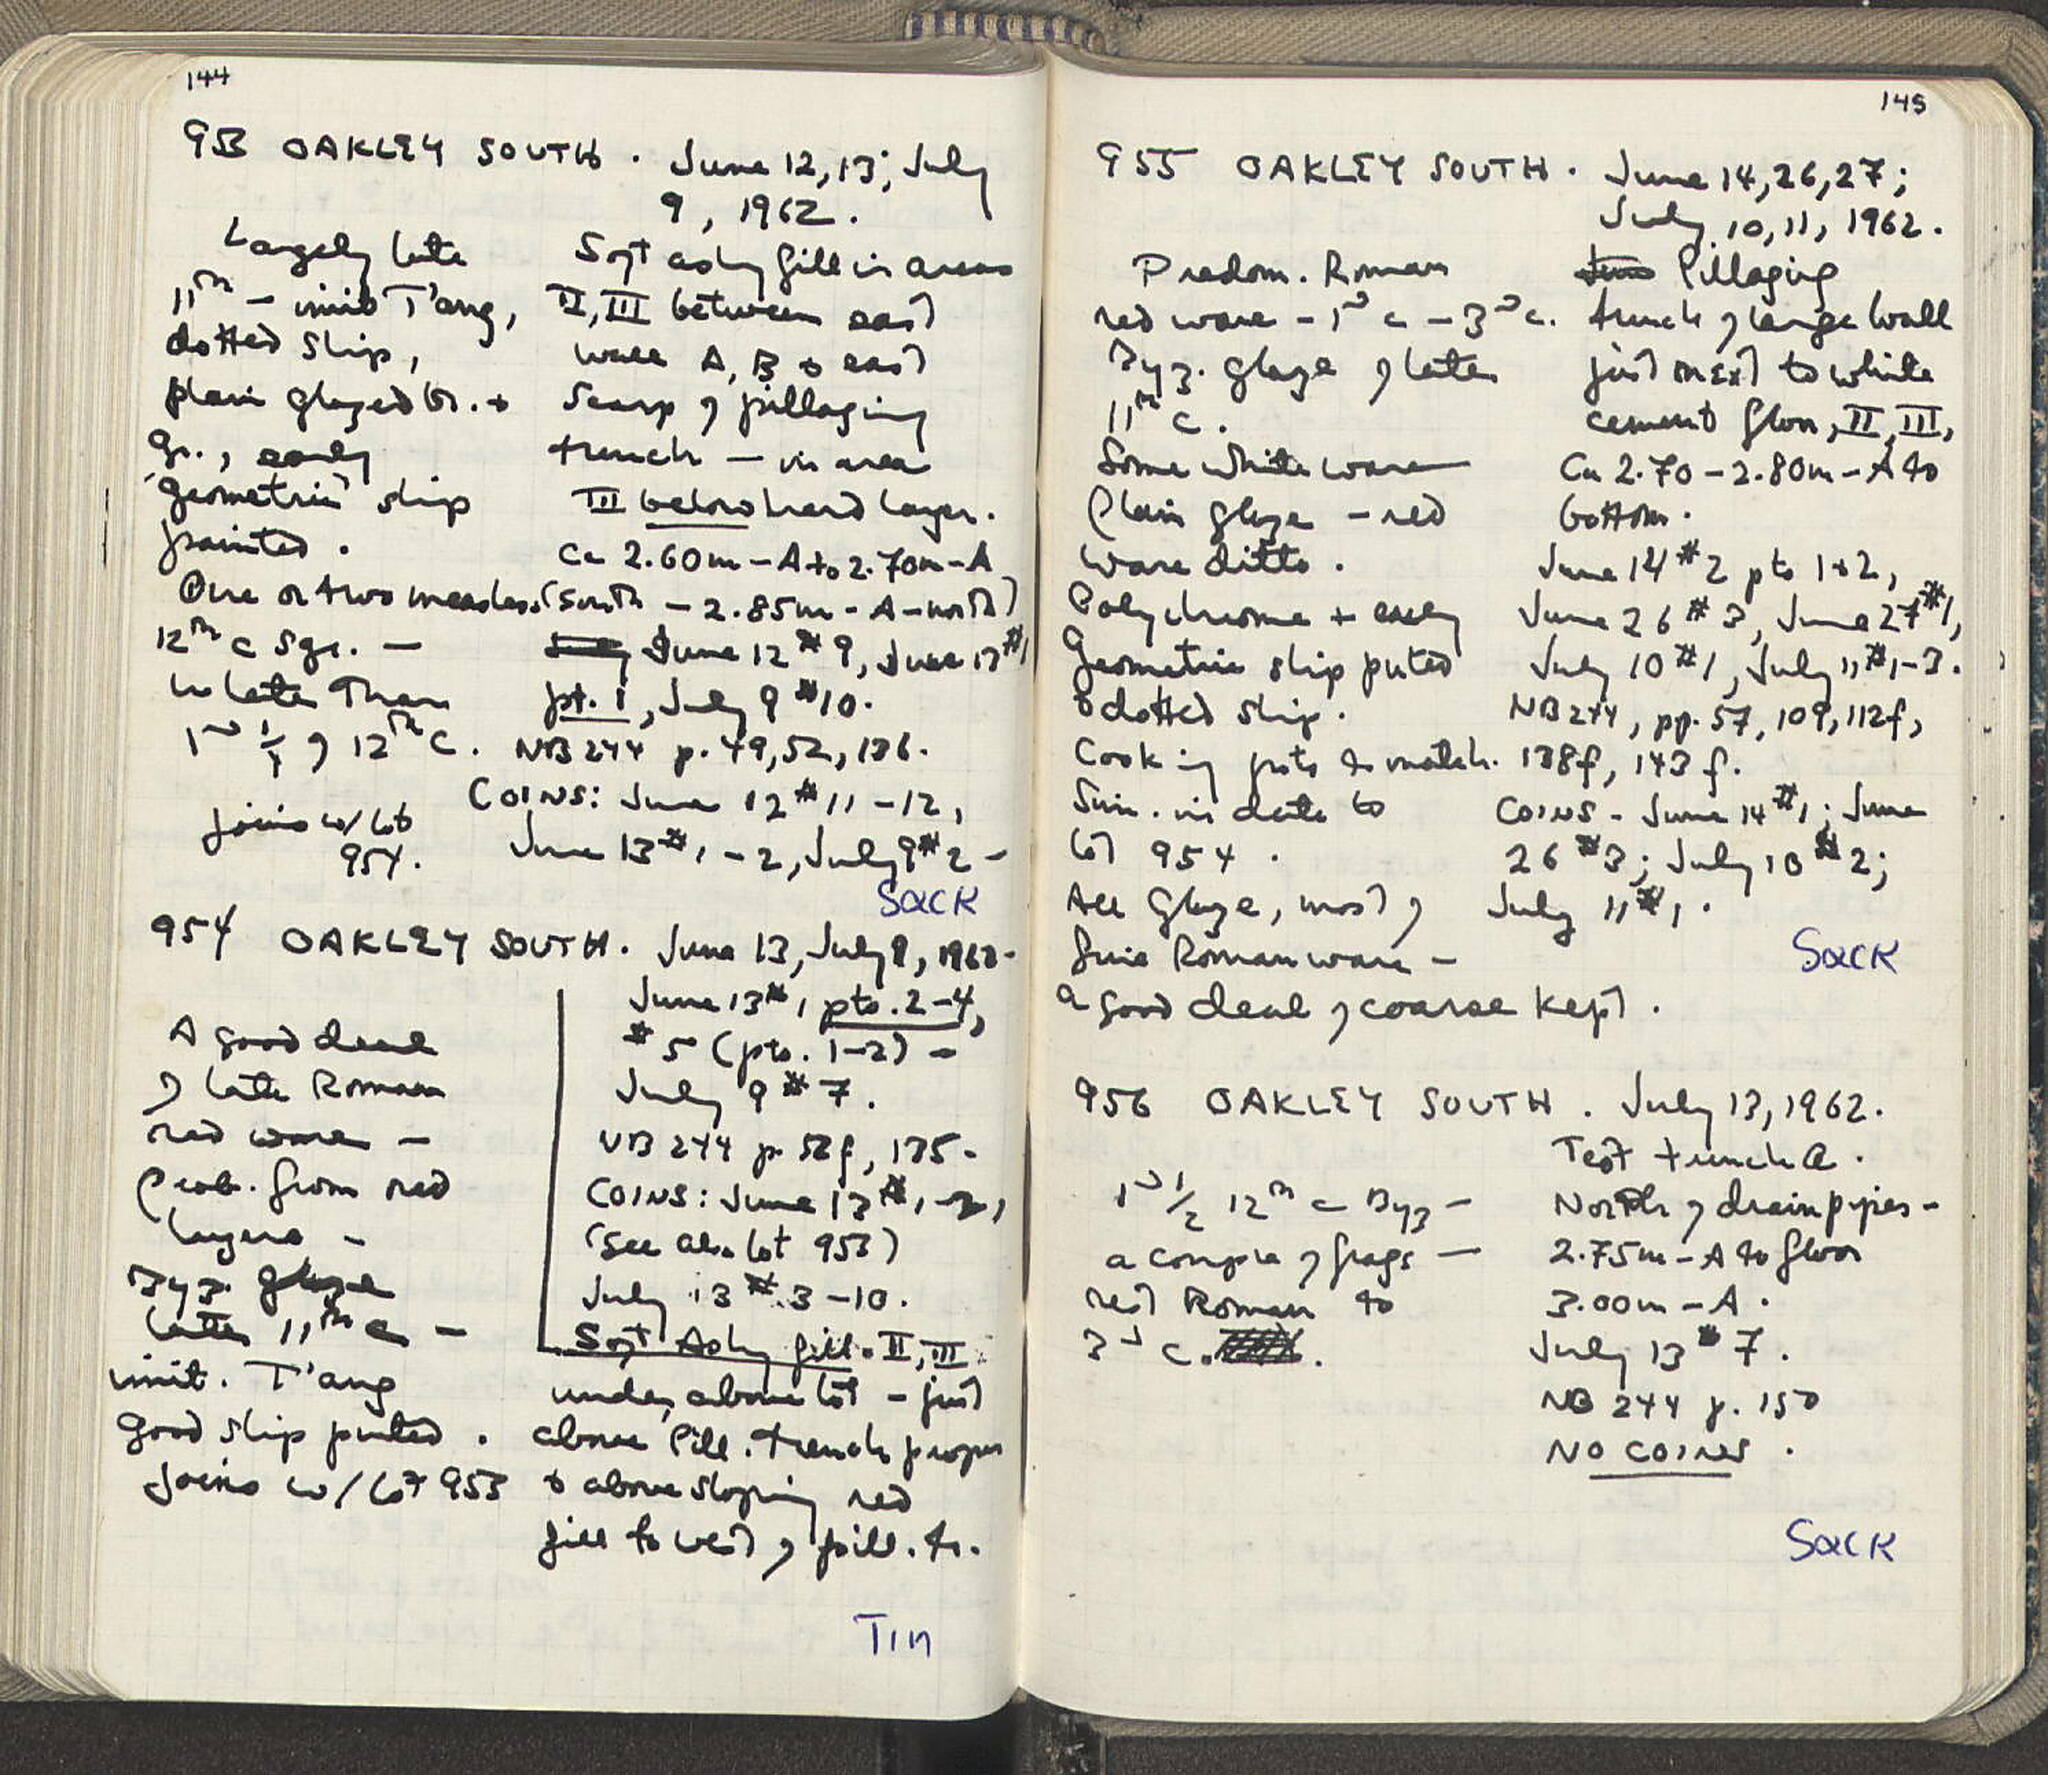 144
953 OAKLEY SOUTH. June 12, 13; July
9, 1962.
Largely late
11th - imit T'ang,
dotted slip,
plain glazed br. +
gr., early
'geometric' slip
painted.
One or two measles.
12th c sgr. -
no later than
1st 1/4 of 12th C.
Joins w/ lot
954.
Soft ashy fill in areas
II, III between east
wall A, B & east
scarp of pillaging
trench - in area
III below hard layer.
Ca 2.60m - A to 2.70m - A
(South - 2.85m - A - north)
June 12 #9, June 13 #1
pt. 1, July 9 #10.
NB 244 p. 49, 52, 136.
COINS: June 12 #11-12,
June 13 #1-2, July 9 #2-
SACK
954 OAKLEY SOUTH. June 13, July 9, 1962-
A good deal
of late Roman
red ware -
Prob. from red
layers -
Byz. glaze
later 11th c -
imit. T'ang
good slip pnted.
Joins w/ lot 953
June 13 #1 pts. 2-4,
#5 (pts. 1-2) -
July 9 #7.
NB 244 p. 52f, 135.
COINS: June 13 #1-2,
(see also lot 953)
July 13 #3-10.
Soft Ashy fill. II, III
under above lot - just
above Pill. trench proper
& above sloping red
fill to west of pill. tr.
TIN
145
955 OAKLEY SOUTH. June 14, 26, 27;
July 10, 11, 1962.
Predom. Roman
red ware - 1st c - 3rd c.
Byz. glaze of later
11th c.
Some white ware
Plain glaze - red
ware ditto.
Polychrome + early
Geometric slip pnted
& dotted slip.
Cooking pots to match.
Sim. in date to
lot 954.
All glaze, most of
fine Roman ware -
a good deal of coarse kept.
Pillaging
trench of large wall
just next to white
cement floor, II, III,
Ca 2.70 - 2.80m - A to
bottom.
June 14 #2 pts 1+2,
June 26 #3, June 27 #1,
July 10 #1, July 11 #1-3.
NB 244, pp. 57, 109, 112f,
138f, 143f.
COINS - June 14 #1; June
26 #3; July 10 #2;
July 11 #1.
SACK
956 OAKLEY SOUTH. July 13, 1962.
1st 1/2 12th c Byz -
a couple of frags -
rest Roman to
3rd c.
Test trench a.
North of drain pipes -
2.75m - A to floor
3.00m - A.
July 13 #7.
NB 244 p. 150
NO COINS.
SACK